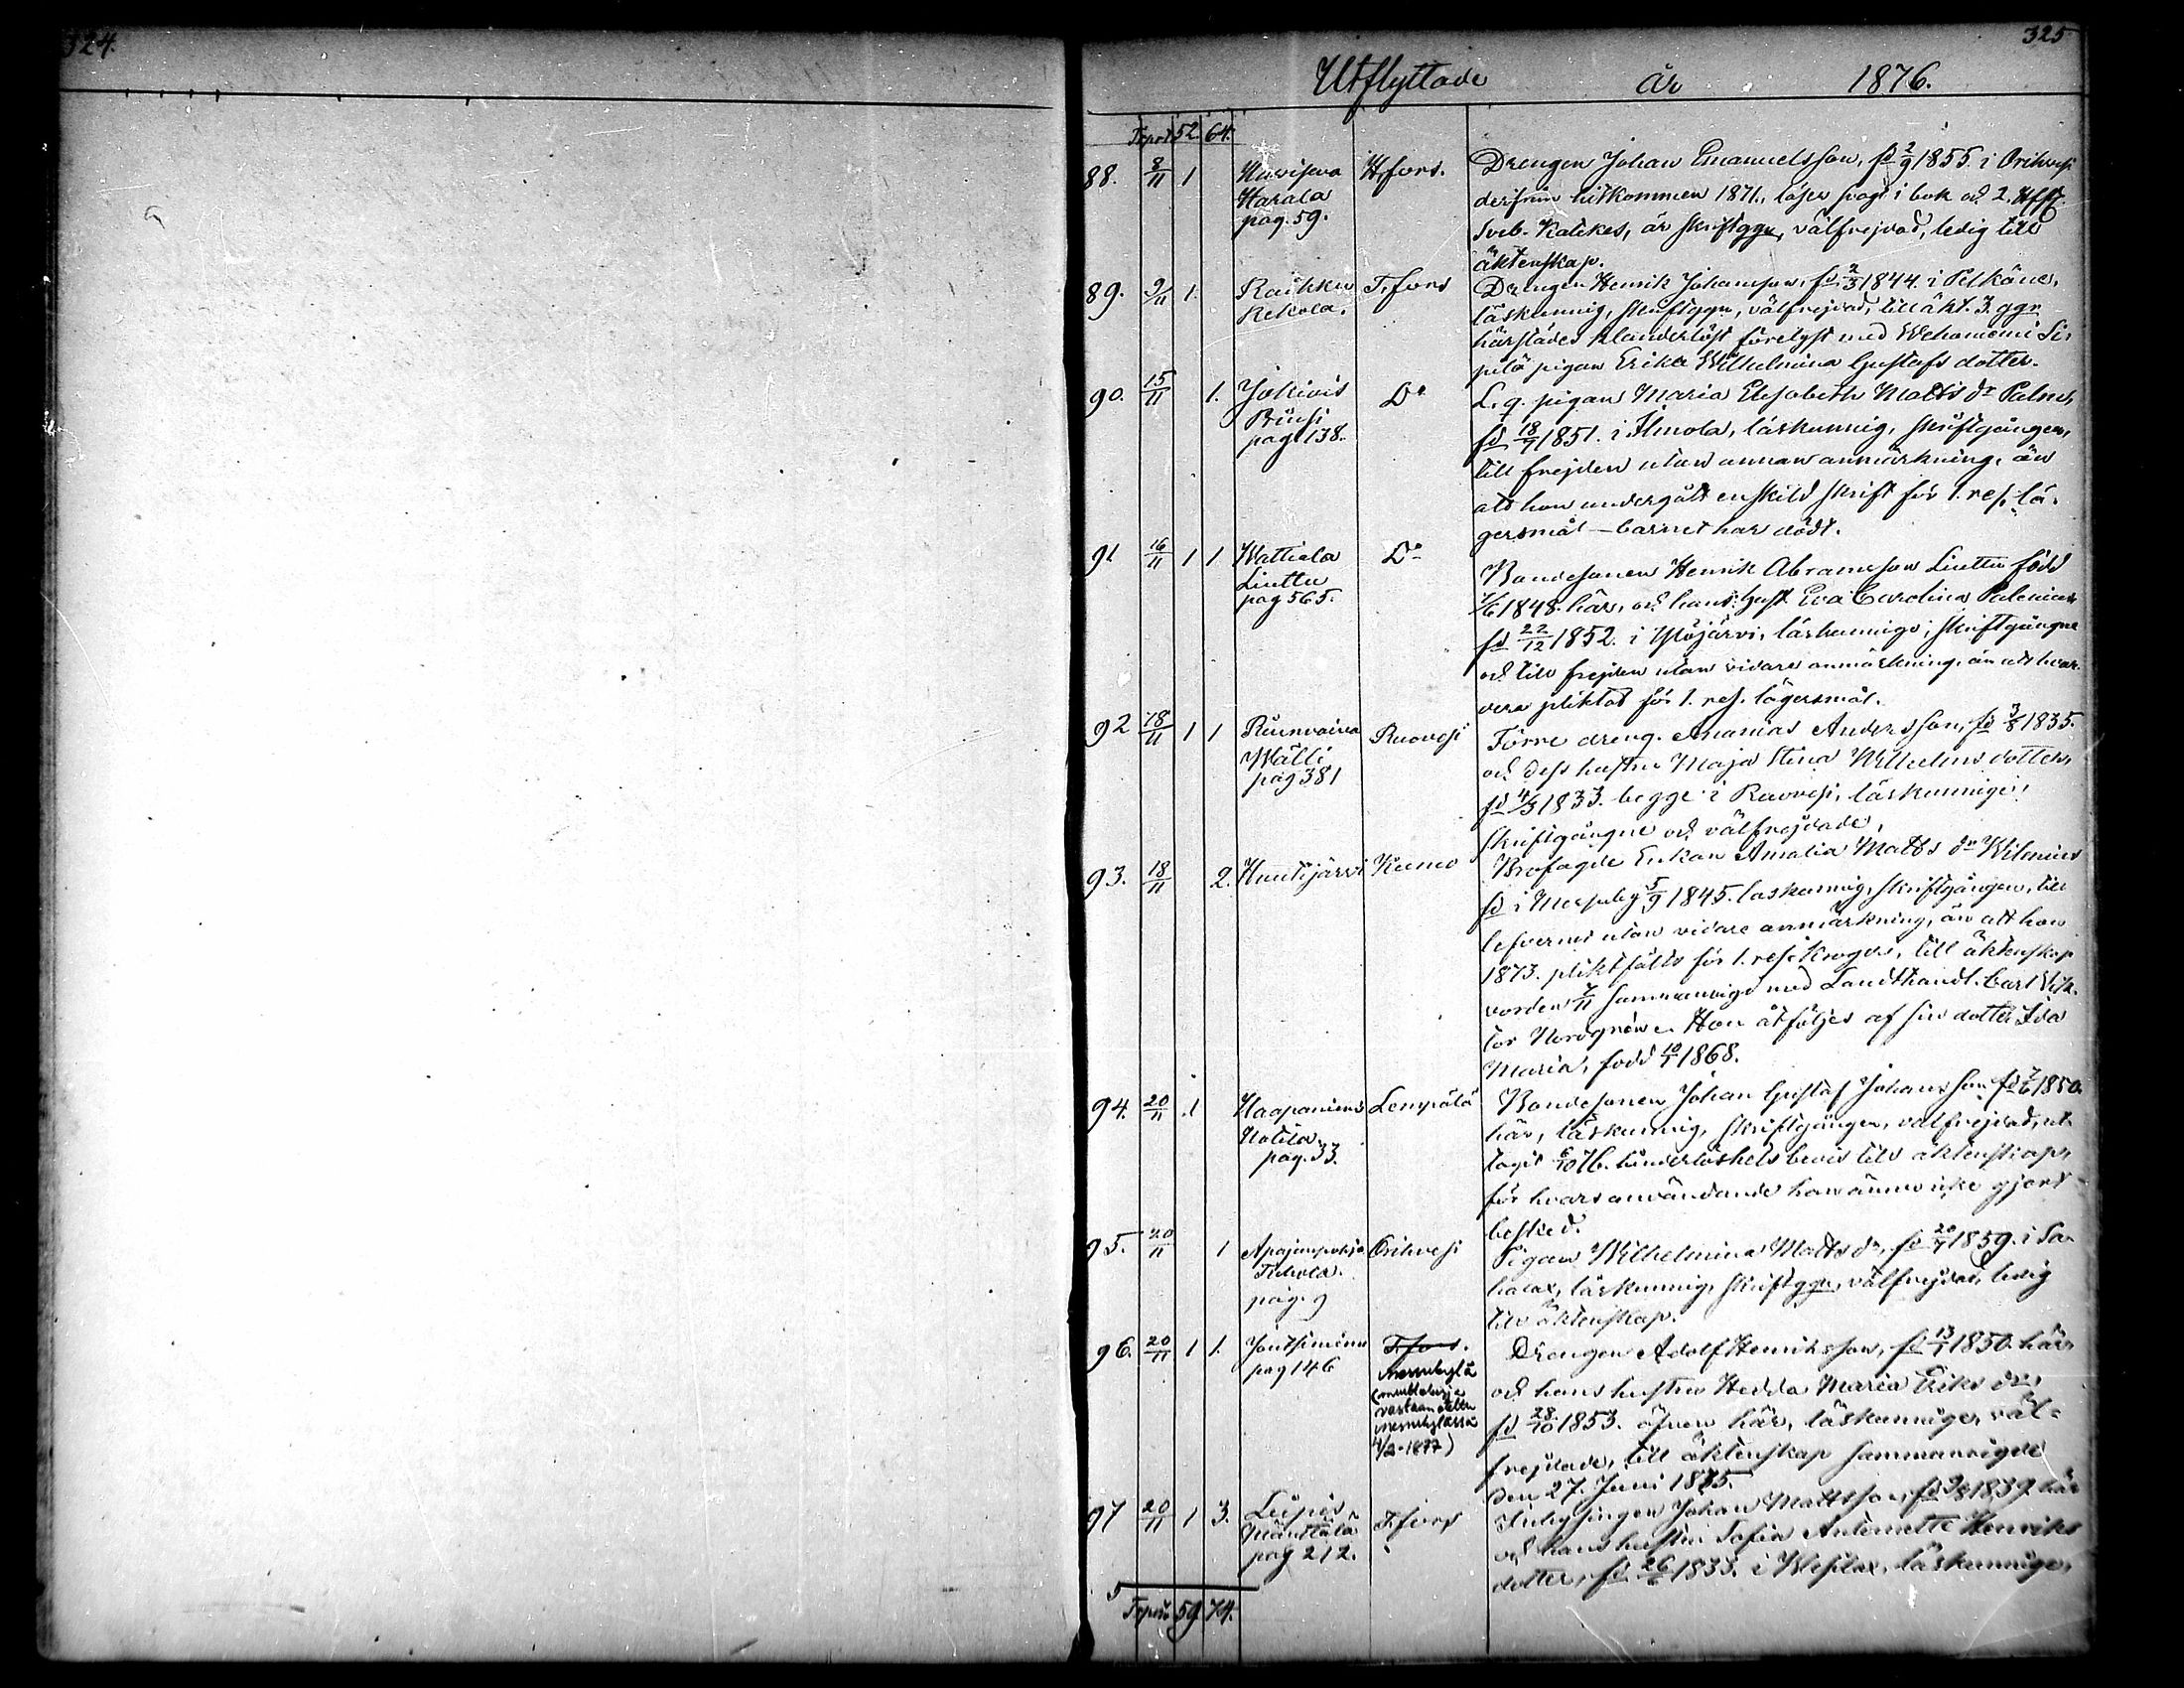 324.
325
Utflyttade år 1876.
Trpt 52. 64.
88. 8/11 1 Harala pag. 59. H,fors.
Drengen Johan Emanuelsson, fd 2/9 1855 i Orihvesi
derifrån hitkommen 1871., i bok och 2.
Sveb. Katekes, är skriftggn, välfrejdad, ledig till
äktenskap.
89. 9/11 1. Raikku Rekola. T,fors
Drengen Henrik Johansson, fd 2/3 1844. i Pelkäne,
läskunnig, skriftggn, välfrejdad, till äkt. 3 ggr
härstädes klanderlöst förelyst med Wehoniemi
pigan Erika Wilhelmina Gustafsdotter.
90. 15/11 1. Jokiois pag 138. Do
L. q. pigan Maria Elisabeth Matts dr
fd 18/7 1851. i Ilmola, läskunnig, skriftgången,
till frejden utan annan anmärkning, än
att hon undergått enskild skrift för 1. res. lä-
gersmål – barnet har dödt.
91. 16/11 1 1 Wattiala Liuttu pag 565. Do
Bondesonen Henrik Abramsson Liuttu född
1848. här, och hans hust Eva Carolina
fd 22/12 1852. i Ylöjärvi, läskunnige, skriftgångne
och till frejden utan vidare anmärkning, än att
pliktat för 1. res. lägersmål.
92 18/11 1 1 Wälli pag 381 Ruovesi
Förre dreng. Ananias Andersson, fd 3/8 1835.
och dess hustru Maja Stina Wilhelms dotter,
fd 4/3 1833. begge i Ruovesi, läskunnige,
skriftgångne och välfrejdade,
93. 18/11 2. Huutijärvi Kumo
Enkan Amalia Matts dr Wilenius
fd i Messuby 5/9 1845. läskunnig, skriftgången, till
lefvernet utan vidare anmärkning, än att hon
1873. pliktfälts för 1. res. krogeri, till äktenskap
vorden 7/11 sammanvigd med Landthandl. Carl Vik-
tor Nordgrén. Hon åtföljes af sin dotter Ida
Maria, född 10/1 1868.
94. 20/11 1 Haapaniemi pag. 33. Lempälä
Bondesonen Johan Gustaf Johansson fd 7/6 1850.
här, läskunnig, skriftgången, välfrejdad, ut-
tagit 6/10 76. hinderlöshets bevis till äktenskap,
för hvars användande han ännu icke gjort
besked.
95. 20/11 1 pag. 9 Orihvesi
Pigan Wilhelmina Matts dr, fd 20/7 1859. i Sa-
halax, läskunnig, skriftggn, välfrejdad, ledig
till äktenskap.
96. 20/11 1 1. Jontsiniemi pag 146 T.fors.
Messukylä
(muuttokirja
vastaan otettu
Messukylässä
4/2-1877)
Drengen Adolf Henriksson, fd 13/1 1850. här,
och hans hustru Hedda Maria Eriks dr,
fd 28/10 1853. äfven här, läskunnige, väl-
frejdade, till äktenskap sammanvigde
den 27. Juni 1875.
97 20/11 1 3. pag 212. T.fors
Inhysingen Johan Mattsson, fd 1839. här
och hans hustru Sofia Antoinette Henriks
dotter, fd 26/6 1833. i Wesilax, läskunnige,
Trpt 59. 74.